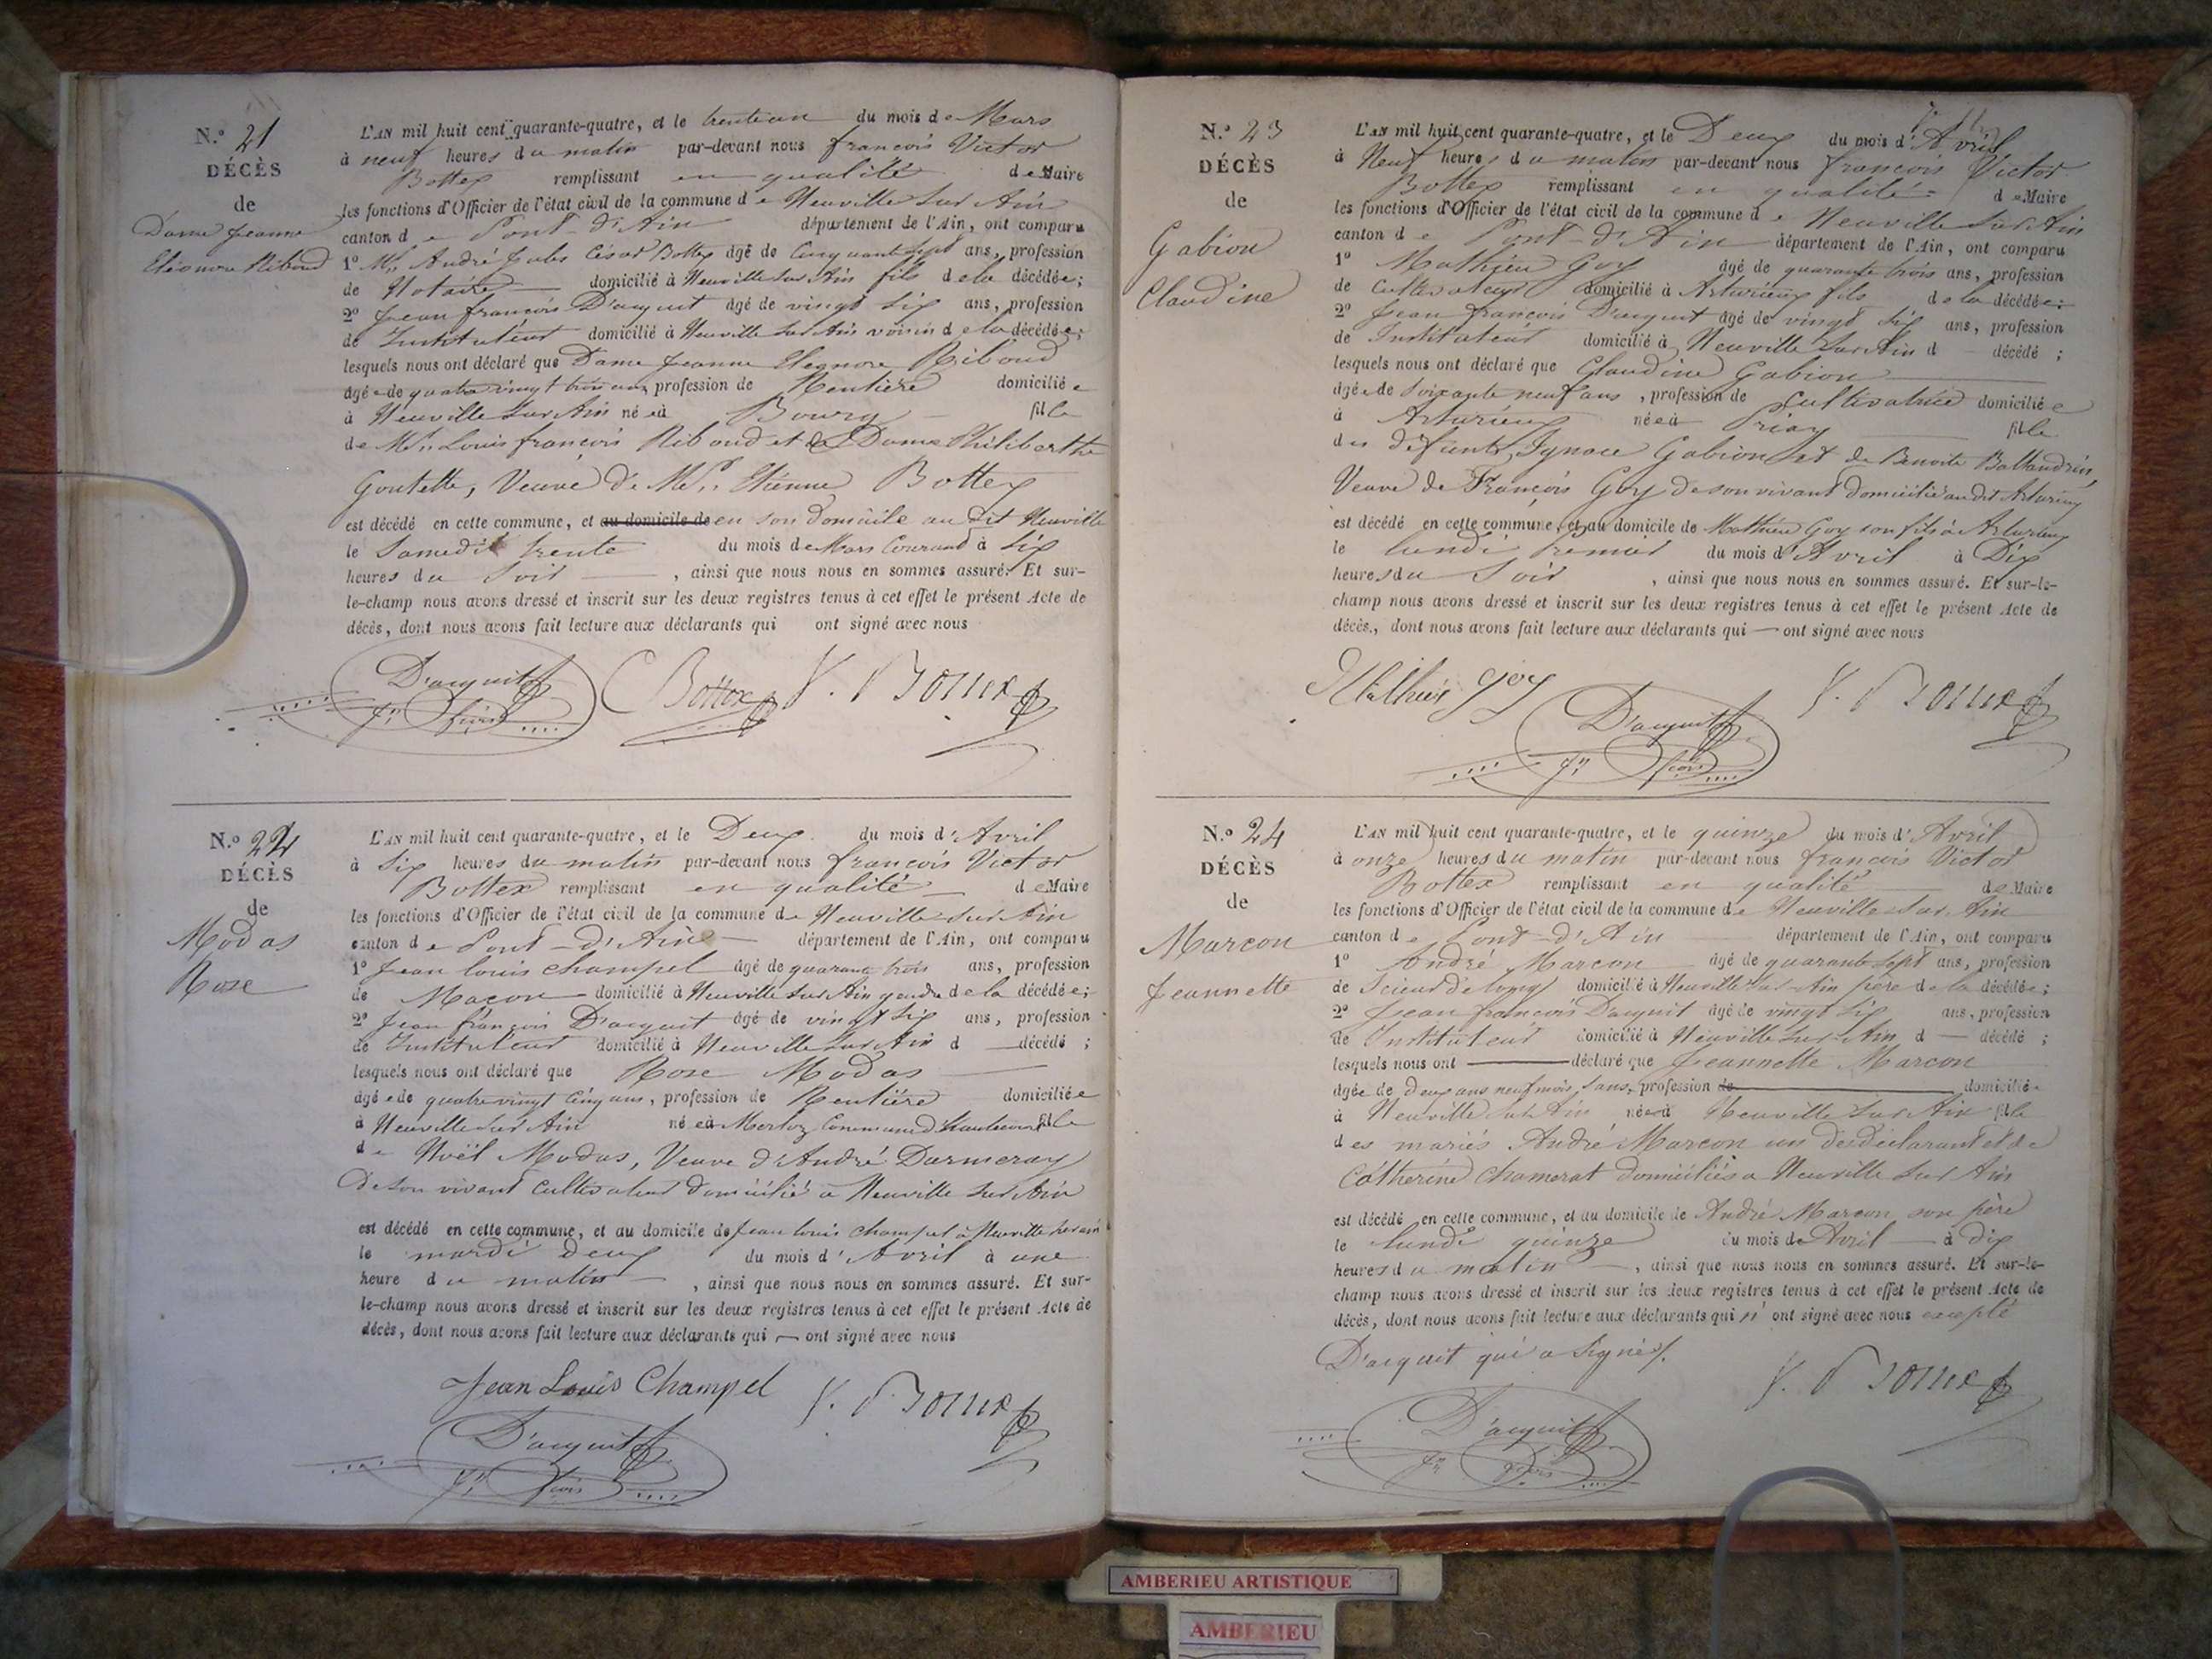 N.º 21
DÉCÈS
de
Dame Jeanne
Eléonore Riboud
L'AN mil huit cent quarante-quatre, et le trente un du mois de Mars
à neuf heures du matin par-devant nous françois Victor
Bottex remplissant en qualité de Maire
les fonctions d'Officier de l'état civil de la commune de Neuville sur Ain
canton de Pont-d'Ain département de l'Ain, ont comparu
1º Mr André Jules César Bottex âgé de Cinquante sept ans, profession
de Notaire domicilié à Neuville sur Ain fils de la décédée;
2º Jean françois D'acquit âgé de vingt six ans, profession
de Instituteur domicilié à Neuville sur Ain voisin de la décédée;
lesquels nous ont déclaré que Dame Jeanne Eleonore Riboud
âgée de quatre vingt trois ans, profession de Rentière domiciliée
à Neuville sur Ain née à Bourg fille
de Mr Louis françois Riboud et de Dame Philiberthe
Goutette, Veuve de Mr Etienne Bottex
est décédé en cette commune, et au domicile de en son domicile au dit Neuville
le Samedi trente du mois de Mars Courant à six
heures du Soir, ainsi que nous nous en sommes assuré. Et sur-
le-champ nous avons dressé et inscrit sur les deux registres tenus à cet effet le présent Acte de
décès, dont nous avons fait lecture aux déclarants qui ont signé avec nous
D'acquit C Bottex V. Bottex
Jn fçois
N.º 22
DÉCÈS
de
Modas
Rose
L'AN mil huit cent quarante-quatre, et le Deux du mois d'Avril
à Six heures du matin par-devant nous françois Victor
Bottex remplissant en qualité de Maire
les fonctions d'Officier de l'état civil de la commune de Neuville sur Ain
canton de Pont-d'Ain département de l'Ain, ont comparu
1º Jean louis Champel âgé de quarante trois ans, profession
de Maçon domicilié à Neuville sur Ain gendre de la décédée;
2º Jean françois D'acquit âgé de vingt six ans, profession
de Instituteur domicilié à Neuville sur Ain d décédé;
lesquels nous ont déclaré que Rose Modas
âgée de quatre vingt Cinq ans, profession de Rentière domiciliée
à Neuville sur Ain née à Merloz Commune d'hautecourt fille
de Noël Modas, Veuve d'André Darmeray
De son vivant Cultivateur domicilié à Neuville sur Ain
est décédé en cette commune, et au domicile de Jean louis Champel à Neuville sur ain
le mardi deux du mois d'Avril à une
heure du matin, ainsi que nous nous en sommes assuré. Et sur-
le-champ nous avons dressé et inscrit sur les deux registres tenus à cet effet le présent Acte de
décès, dont nous avons fait lecture aux déclarants qui ont signé avec nous
Jean Louis Champel V. Bottex
D'acquit
Jn fçois
N.º 23
DÉCÈS
de
Gabion
Claudine
L'AN mil huit cent quarante-quatre, et le Deux du mois d'Avril
à Neuf heures du matin par-devant nous françois Victor
Bottex remplissant en qualité de Maire
les fonctions d'Officier de l'état civil de la commune de Neuville sur Ain
canton de Pont-d'Ain département de l'Ain, ont comparu
1º Mathieu Goy âgé de quarante trois ans, profession
de Cultivateur domicilié à Arturieux fils de la décédée;
2º Jean françois D'acquit âgé de vingt six ans, profession
de Instituteur domicilié à Neuville sur Ain d décédé;
lesquels nous ont déclaré que Claudine Gabion
âgée de Soixante neuf ans, profession de Cultivatrice domiciliée
à Arturieux née à Priay fille
des défunts Ignace Gabion et de Benoite Ballandrin,
Veuve de François Goy de son vivant domicilié audit Arturieux
est décédé en cette commune, et au domicile de Mathieu Goy son fils à Arturieux
le lundi premier du mois d'Avril à Dix
heures du Soir, ainsi que nous nous en sommes assuré. Et sur-le-
champ nous avons dressé et inscrit sur les deux registres tenus à cet effet le présent Acte de
décès, dont nous avons fait lecture aux déclarants qui ont signé avec nous
Mathieu goy V. Bottex
D'acquit
Jn fçois
N.º 24
DÉCÈS
de
Marcon
Jeannette
L'AN mil huit cent quarante-quatre, et le quinze du mois d'Avril
à onze heures du matin par-devant nous françois Victor
Bottex remplissant en qualité de Maire
les fonctions d'Officier de l'état civil de la commune de Neuville sur Ain
canton de Pont-d'Ain département de l'Ain, ont comparu
1º André Marcon âgé de quarante sept ans, profession
de Scieur de long domicilié à Neuville sur Ain père de la décédée;
2º Jean françois D'acquit âgé de vingt six ans, profession
de Instituteur domicilié à Neuville sur Ain d décédé;
lesquels nous ont déclaré que Jeannette Marcon
âgée de Deux ans neuf mois, sans profession de domiciliée
à Neuville sur Ain née à Neuville sur Ain fille
des mariés André Marcon un des déclarants et de
Catherine Chamerat domiciliés à Neuville sur Ain
est décédé en cette commune, et au domicile de André Marcon son père
le lundi quinze du mois de Avril à dix
heures du matin, ainsi que nous nous en sommes assuré. Et sur-le-
champ nous avons dressé et inscrit sur les deux registres tenus à cet effet le présent Acte de
décès, dont nous avons fait lecture aux déclarants qui n'ont signé avec nous excepté
D'acquit qui a signé.
V. Bottex
D'acquit
Jn fçois
AMBERIEU ARTISTIQUE
AMBERIEU